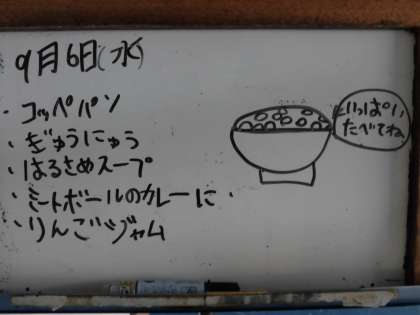 9月6日(水)
・コッペパン
・ぎゅうにゅう
・はるさめスープ
・ミートボールのカレーに・
・りんごジャム
いっぱい
たべてね